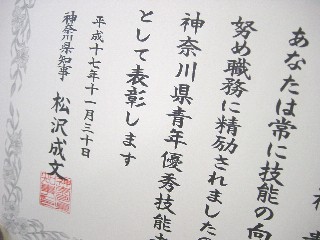 あなたは常に技能の向
努め職務に精励されました
神奈川県青年優秀技能
として表彰します
平成十七年十一月三十日
神奈川県知事 松沢成文